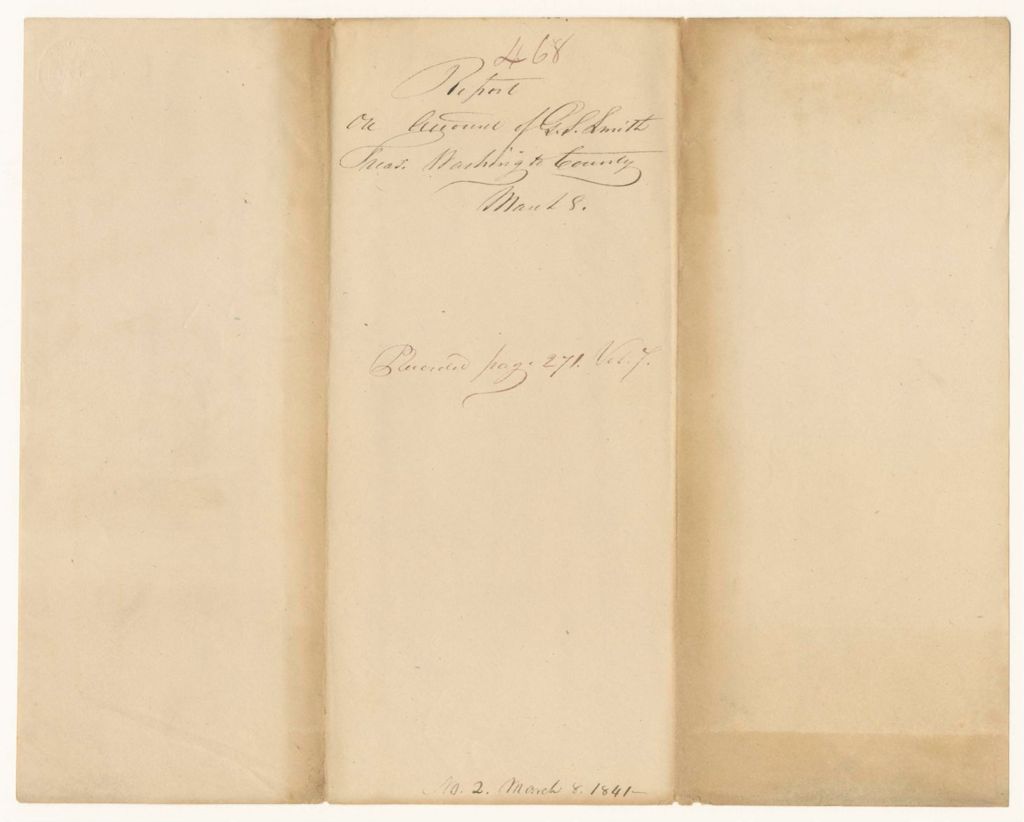 468
Report
On Account of G. S. Smith
Treas. Washingto County
March 8.
Recorded page 271. Vol. 7.
No. 2. March 8. 1841-